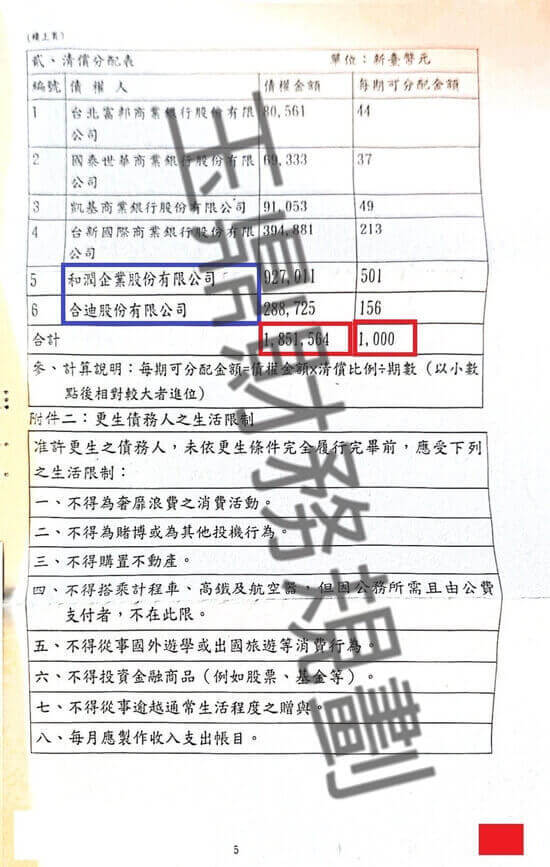 (續上頁)
貳、清償分配表 單位:新臺幣元
編號 債權人 債權金額 每期可分配金額
1 台北富邦商業銀行股份有限公司 80,561 44
2 國泰世華商業銀行股份有限公司 69,333 37
3 凱基商業銀行股份有限公司 91,053 49
4 台新國際商業銀行股份有限公司 394,881 213
5 和潤企業股份有限公司 927,011 501
6 合迪股份有限公司 288,725 156
合計 1,851,564 1,000
參、計算說明:每期可分配金額=債權金額×清償比例÷期數(以小數
點後相對較大者進位)
附件二:更生債務人之生活限制
准許更生之債務人,未依更生條件完全履行完畢前,應受下列
之生活限制:
一、不得為奢靡浪費之消費活動。
二、不得為賭博或為其他投機行為。
三、不得購置不動產。
四、不得搭乘計程車、高鐵及航空器,但因公務所需且由公費
支付者,不在此限。
五、不得從事國外遊學或出國旅遊等消費行為。
六、不得投資金融商品(例如股票、基金等)。
七、不得從事逾越通常生活程度之贈與。
八、每月應製作收入支出帳目。
5
玉鼎財務規劃